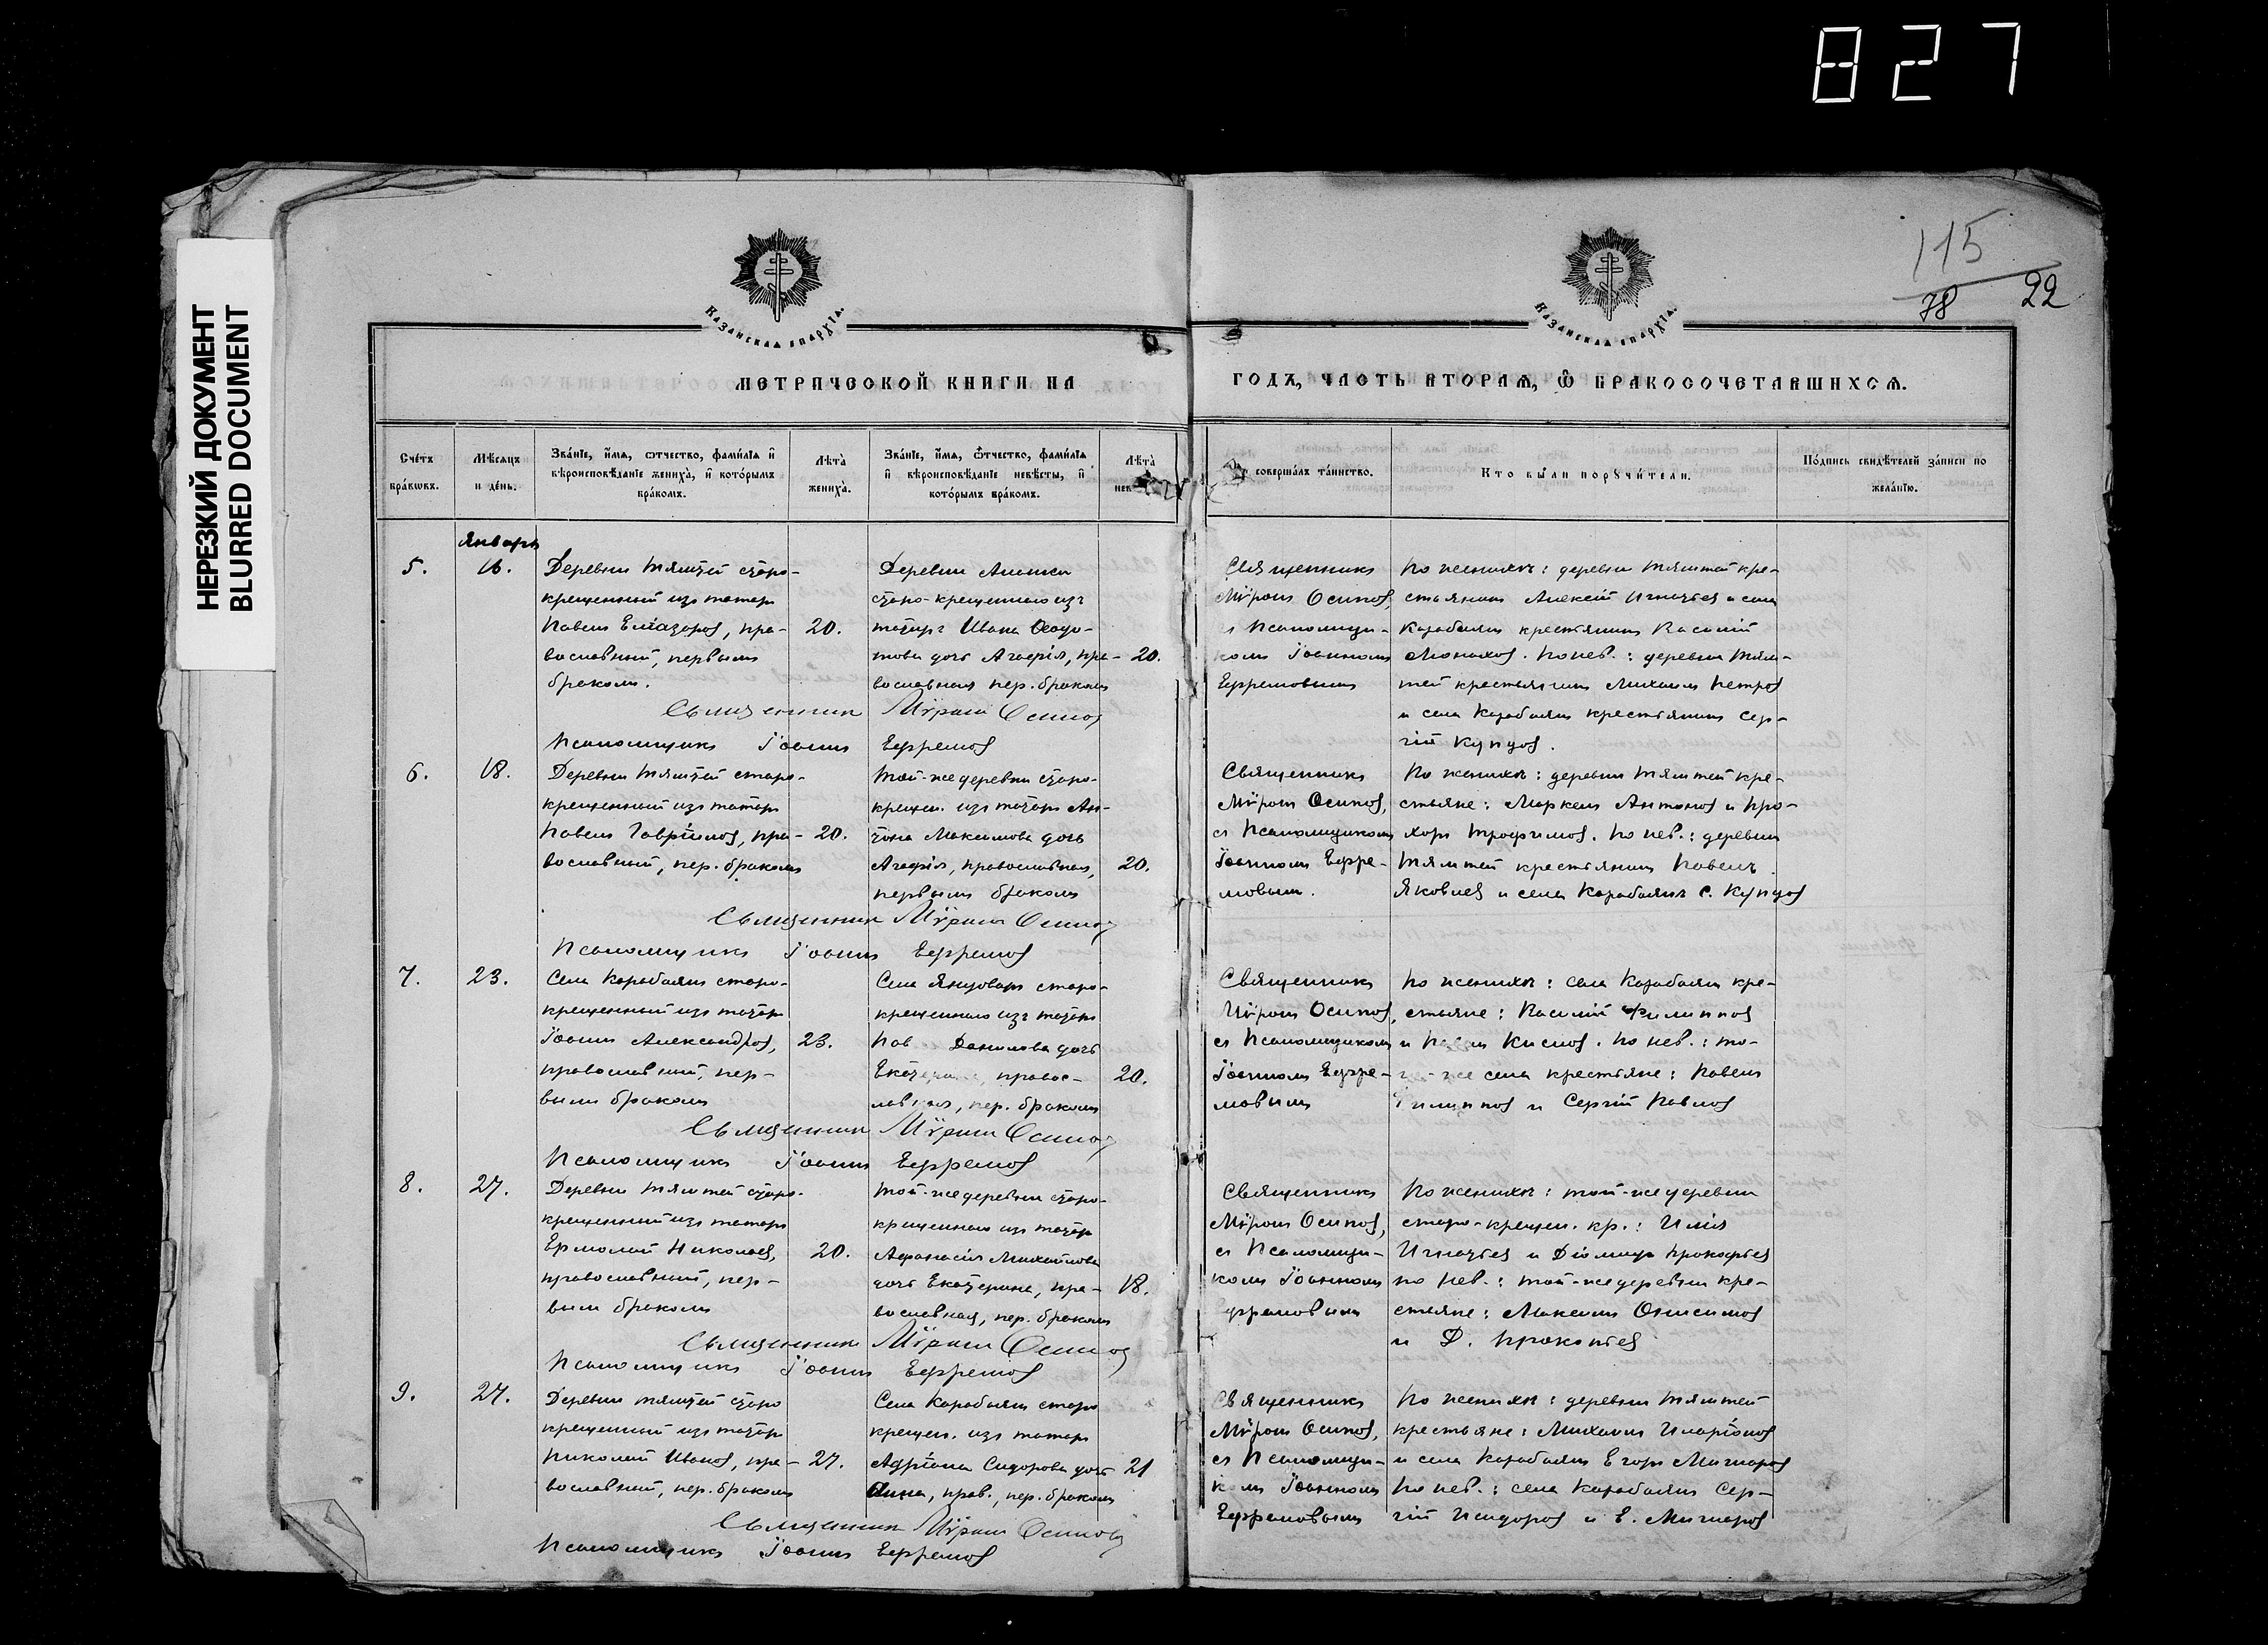 827
НЕРЕЗКИЙ ДОКУМЕНТ
BLURRED DOCUMENT
115
78
22
Казанская епархіа.
Казанская епархіа.
МЕТРИЧЕСКОЙ КНИГИ НА
ГОДЪ, ЧАСТЬ ВТОРАѦ, Ѽ БРАКОСОЧЕТАВШИХСѦ.
Счетъ браковъ.
Мѣсяцъ и день.
Званіе, имя, отчество, фамилія и вѣроисповѣданіе жениха, и которымъ бракомъ.
Лѣта жениха.
Званіе, имя, отчество, фамилія и вѣроисповѣданіе невѣсты, и которымъ бракомъ.
Лѣта нев
совершалъ таинство.
Кто были поручители.
Подпись свидѣтелей записи по желанію.
Январь
5.
16.
Деревни Тямтей старо-
крещенный изъ татаръ
Павелъ Еліазаровъ, пра-
вославный, первымъ
бракомъ.
20.
Деревни
старо-крещеннаго изъ
татаръ Ивана Ѳедо-
това дочь Агафія, пра-
вославная пер. бракомъ
20.
Священникъ
Мѵронъ Осиповъ,
съ Псаломщи-
комъ Іоанномъ
Ефремовымъ
По женихѣ: деревни Тямтей кре-
стьянинъ Алексѣй Игнатьевъ и села
Карабаянъ крестьянинъ Василій
Монаховъ. По нев.: деревни Тям-
тей крестьянинъ Михаилъ Петровъ
и села Карабаянъ крестьянинъ Сер-
гій Купцовъ.
Священникъ Мѵронъ Осиповъ
Псаломщикъ Іоаннъ Ефремовъ
6.
18.
Деревни Тямтей старо-
крещенный изъ татаръ
Павелъ Гавріиловъ, пра-
вославный, пер. бракомъ
20.
Той-же деревни старо-
крещен. изъ татаръ Ан-
тона Максимова дочь
Агафія, православная,
первымъ бракомъ
20.
Священникъ
Мѵронъ Осиповъ,
съ Псаломщикомъ
Іоанномъ Ефре-
мовымъ.
По женихѣ: деревни Тямтей кре-
стьяне: Маркелъ Антоновъ и Про-
хоръ Трофимовъ. По нев.: деревни
Тямтей крестьянинъ Павелъ
Яковлевъ и села Карабаянъ С. Купцовъ
Священникъ Мѵронъ Осиповъ
Псаломщикъ Іоаннъ Ефремовъ
7.
23.
Села Карабаянъ старо-
крещенный изъ татаръ
Іоаннъ Александровъ,
православный, пер-
вымъ бракомъ
23.
Села Янцоваръ старо-
крещеннаго изъ татаръ
Пав Данилова дочь
Екатерина, правос-
лавная, пер. бракомъ
20.
Священникъ
Мѵронъ Осиповъ,
съ Псаломщикомъ
Іоанномъ Ефре-
мовымъ
По женихѣ: села Карабаянъ кре-
стьяне: Василій Филипповъ
и Кисловъ. По нев.: то-
го-же села крестьяне: Павелъ
Филипповъ и Сергій Павловъ
Священникъ Мѵронъ Осиповъ
Псаломщикъ Іоаннъ Ефремовъ
8.
27.
Деревни Тямтей старо-
крещенный изъ татаръ
Ермолай Николаевъ,
православный, пер-
вымъ бракомъ
20.
Той-же деревни старо-
крещеннаго изъ татаръ
Афанасія Михайлова
дочь Екатерина, пра-
вославная, пер. бракомъ
18.
Священникъ
Мѵронъ Осиповъ,
съ Псаломщи-
комъ Іоанномъ
Ефремовымъ
По женихѣ: той-же деревни
старо-крещен. кр.: Илія
Игнатьевъ и Діомидъ Прокофьевъ
по нев.: той-же деревни кре-
стьяне: Максимъ Онисимовъ
и Д. Прокопьевъ
Священникъ Мѵронъ Осиповъ
Псаломщикъ Іоаннъ Ефремовъ
9.
27.
Деревни Тямтей старо
крещенный изъ татаръ
Николай Ивановъ, пра-
вославный, пер. бракомъ
27.
Села Карабаянъ старо
крещен. изъ татаръ
Адріана Сидорова дочь
Анна, прав., пер. бракомъ
21
Священникъ
Мѵронъ Осиповъ,
съ Псаломщи-
комъ Іоанномъ
Ефремовымъ
По женихѣ: деревни Тямтей
крестьяне: Михаилъ Иларіоновъ
и села Карабаянъ Егоръ Мишаровъ
По нев.: села Карабаянъ Сер-
гій Исидоровъ и Е. Мишаровъ
Священникъ Мѵронъ Осиповъ
Псаломщикъ Іоаннъ Ефремовъ